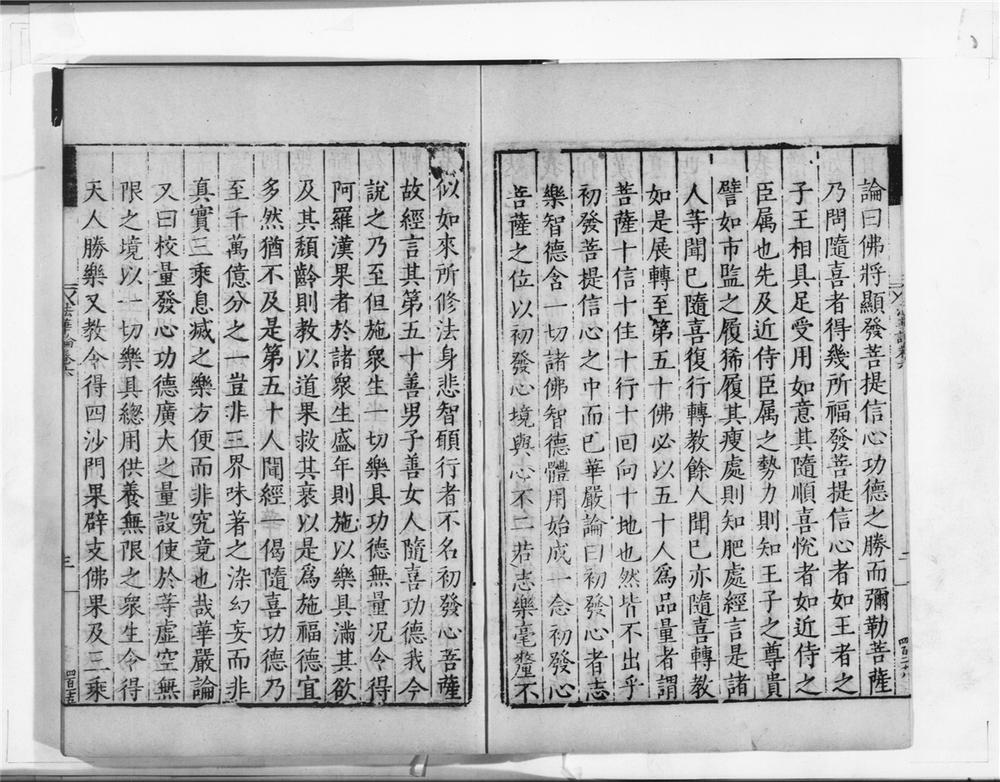 論曰佛將顯發菩提信心功德之勝而彌勒菩薩
乃問隨喜者得幾所福發菩提信心者如王者之
子王相具足受用如意其隨順喜悅者如近侍之
臣属也先及近侍臣属之勢力則知王子之尊貴
譬如市監之履狶履其瘦處則知肥處經言是諸
人等聞已隨喜復行轉教餘人聞已亦隨喜轉教
如是展轉至第五十佛必以五十人為品量者謂
菩薩十信十住十行十回向十地也然皆不出乎
初發菩提信心之中而已華嚴論曰初發心者志
樂智德含一切諸佛智德體用始成一念初發心
菩薩之位以初發心境與心不二若志樂毫釐不
似如來所修法身悲智願行者不名初發心菩薩
故經言其第五十善男子善女人隨喜功德我今
說之乃至但施衆生一切樂具功德無量况令得
阿羅漢果者於諸衆生盛年則施以樂具滿其欲
及其頹齡則教以道果救其衰以是為施福德宜
多然猶不及是第五十人聞經一偈隨喜功德乃
至千萬億分之一豈非三界味著之染幻妄而非
真實三乘息滅之樂方便而非究竟也哉華嚴論
又曰校量發心功德廣大之量設使於等虛空無
限之境以一切樂具總用供養無限之衆生令得
天人勝樂又教令得四沙門果辟支佛果及三乘
法華論卷六
三